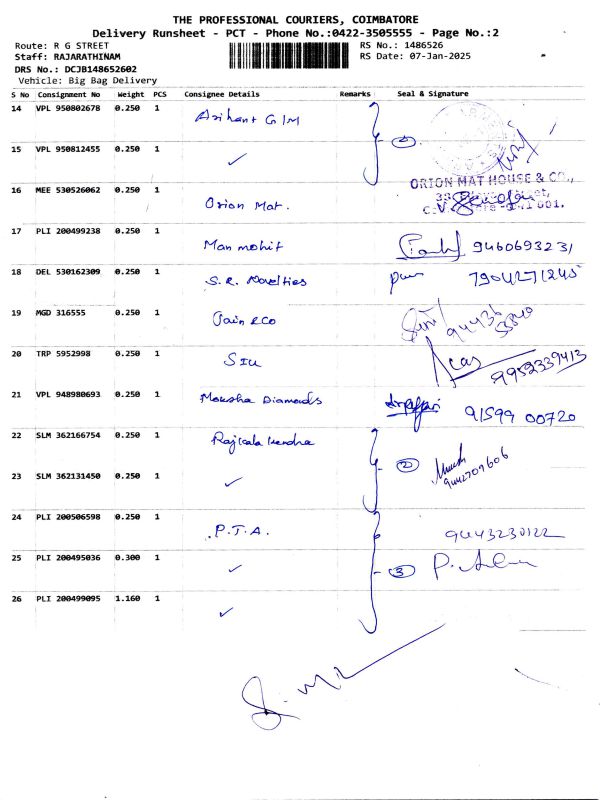 THE PROFESSIONAL COURIERS, COIMBATORE
Delivery Runsheet - PCT - Phone No.:0422-3505555 - Page No.:2
Route: R G STREET
RS No.: 1486526
Staff: RAJARATHINAM
RS Date: 07-Jan-2025
DRS No.: DCJB148652602
Vehicle: Big Bag Delivery
S No Consignment No Weight PCS Consignee Details Remarks Seal & Signature
14 VPL 950802678 0.250 1 Arihant GIM
15 VPL 950812455 0.250 1 ✓ 2
ORION MAT HOUSE & CO.,
16 MEE 530526062 0.250 1 Orion Mat.
17 PLI 200499238 0.250 1 Man mohit 9460693231
18 DEL 530162309 0.250 1 S.R. Novelties 7904271245
19 MGD 316555 0.250 1 Jain & Co 94436
20 TRP 5952998 0.250 1 SIU 9952339413
21 VPL 948980693 0.250 1 Moksha Diamonds 91599 00720
22 SLM 362166754 0.250 1 Rajkala kendra 2
23 SLM 362131450 0.250 1 ✓ 9442707606
24 PLI 200506598 0.250 1 P.T.A. 9443230122
25 PLI 200495036 0.300 1 ✓ 3
26 PLI 200499095 1.160 1 ✓